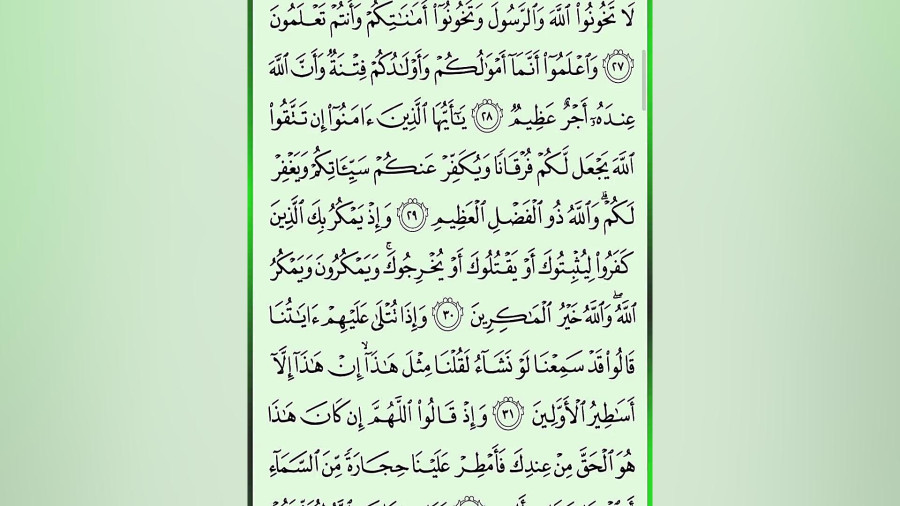 لَا تَخُونُوا۟ ٱللَّهَ وَٱلرَّسُولَ وَتَخُونُوٓا۟ أَمَٰنَٰتِكُمْ وَأَنتُمْ تَعْلَمُونَ
٢٧ وَٱعْلَمُوٓا۟ أَنَّمَآ أَمْوَٰلُكُمْ وَأَوْلَٰدُكُمْ فِتْنَةٌ وَأَنَّ ٱللَّهَ
عِندَهُۥٓ أَجْرٌ عَظِيمٌ ٢٨ يَٰٓأَيُّهَا ٱلَّذِينَ ءَامَنُوٓا۟ إِن تَتَّقُوا۟
ٱللَّهَ يَجْعَل لَّكُمْ فُرْقَانًا وَيُكَفِّرْ عَنكُمْ سَيِّـَٔاتِكُمْ وَيَغْفِرْ
لَكُمْ ۗ وَٱللَّهُ ذُو ٱلْفَضْلِ ٱلْعَظِيمِ ٢٩ وَإِذْ يَمْكُرُ بِكَ ٱلَّذِينَ
كَفَرُوا۟ لِيُثْبِتُوكَ أَوْ يَقْتُلُوكَ أَوْ يُخْرِجُوكَ ۚ وَيَمْكُرُونَ وَيَمْكُرُ
ٱللَّهُ ۖ وَٱللَّهُ خَيْرُ ٱلْمَٰكِرِينَ ٣٠ وَإِذَا تُتْلَىٰ عَلَيْهِمْ ءَايَٰتُنَا
قَالُوا۟ قَدْ سَمِعْنَا لَوْ نَشَآءُ لَقُلْنَا مِثْلَ هَٰذَآ ۙ إِنْ هَٰذَآ إِلَّآ
أَسَٰطِيرُ ٱلْأَوَّلِينَ ٣١ وَإِذْ قَالُوا۟ ٱللَّهُمَّ إِن كَانَ هَٰذَا
هُوَ ٱلْحَقَّ مِنْ عِندِكَ فَأَمْطِرْ عَلَيْنَا حِجَارَةً مِّنَ ٱلسَّمَآءِ